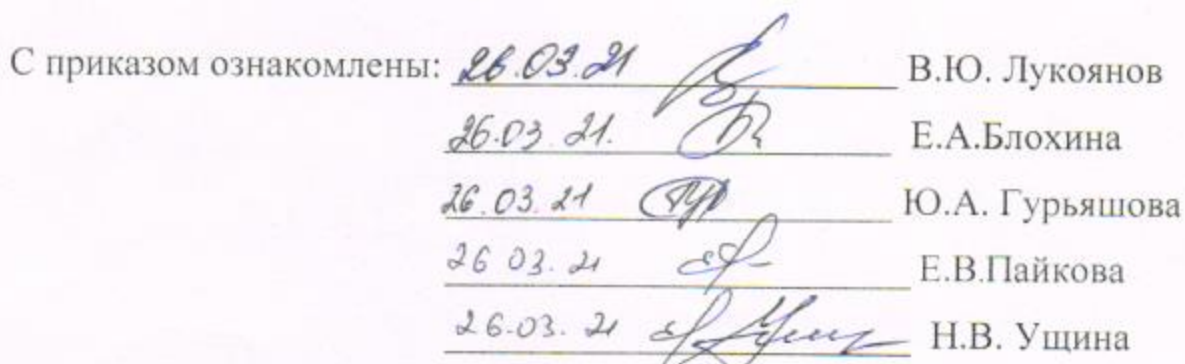 С приказом ознакомлены: 26.03.21 В.Ю. Лукоянов
26.03.21. Е.А.Блохина
26.03.21 Ю.А. Гурьяшова
26 03.21 Е.В.Пайкова
26.03.21 Н.В. Ущина